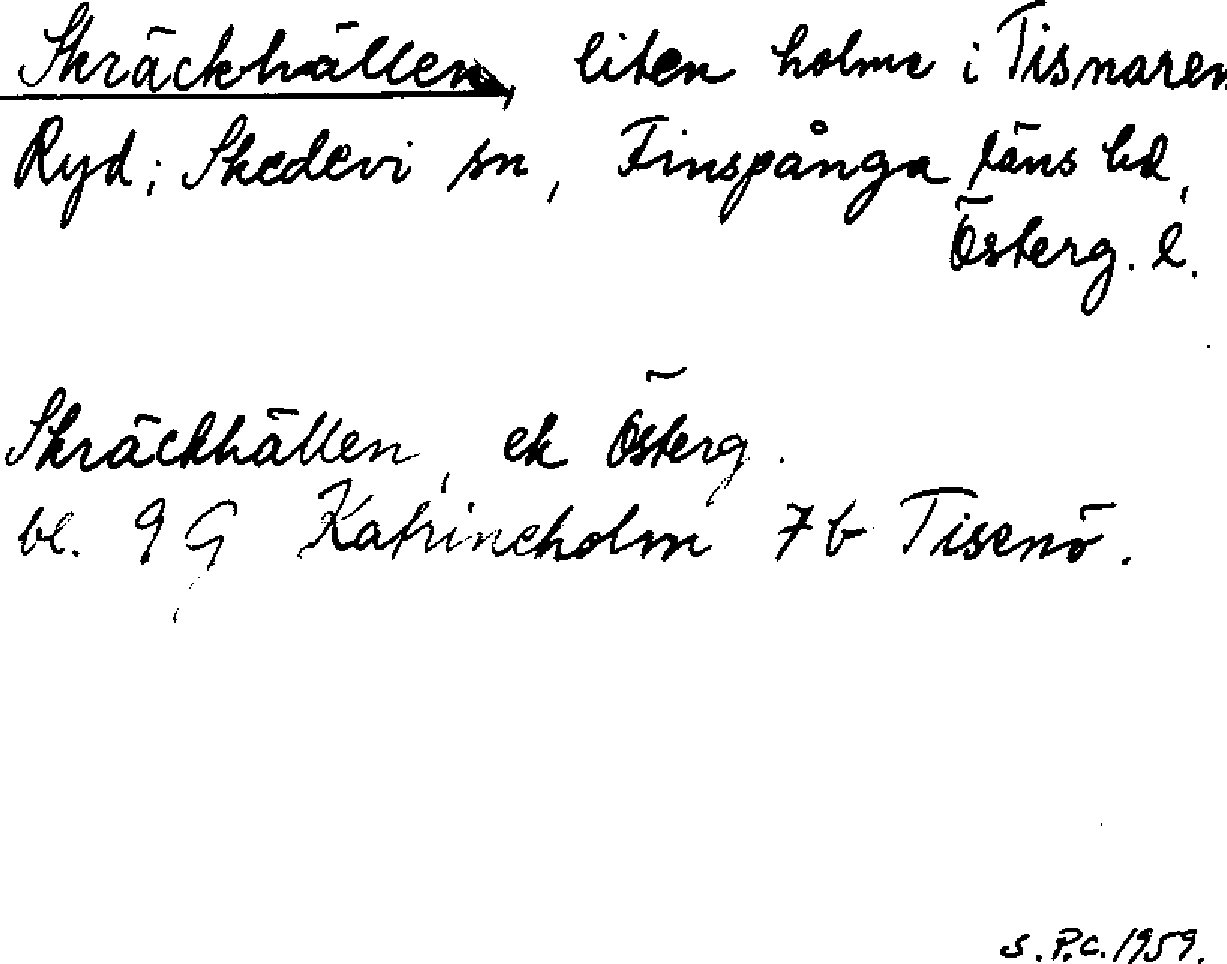 Skräckhällen, liten holme i Tisnaren
Ryd; Skedevi sn, Finspånga läns hd,
Österg. l.
Skräckhällen, ek Österg.
bl. 9G Katrineholm 7b Tisenö.
S.P.C. 1959.